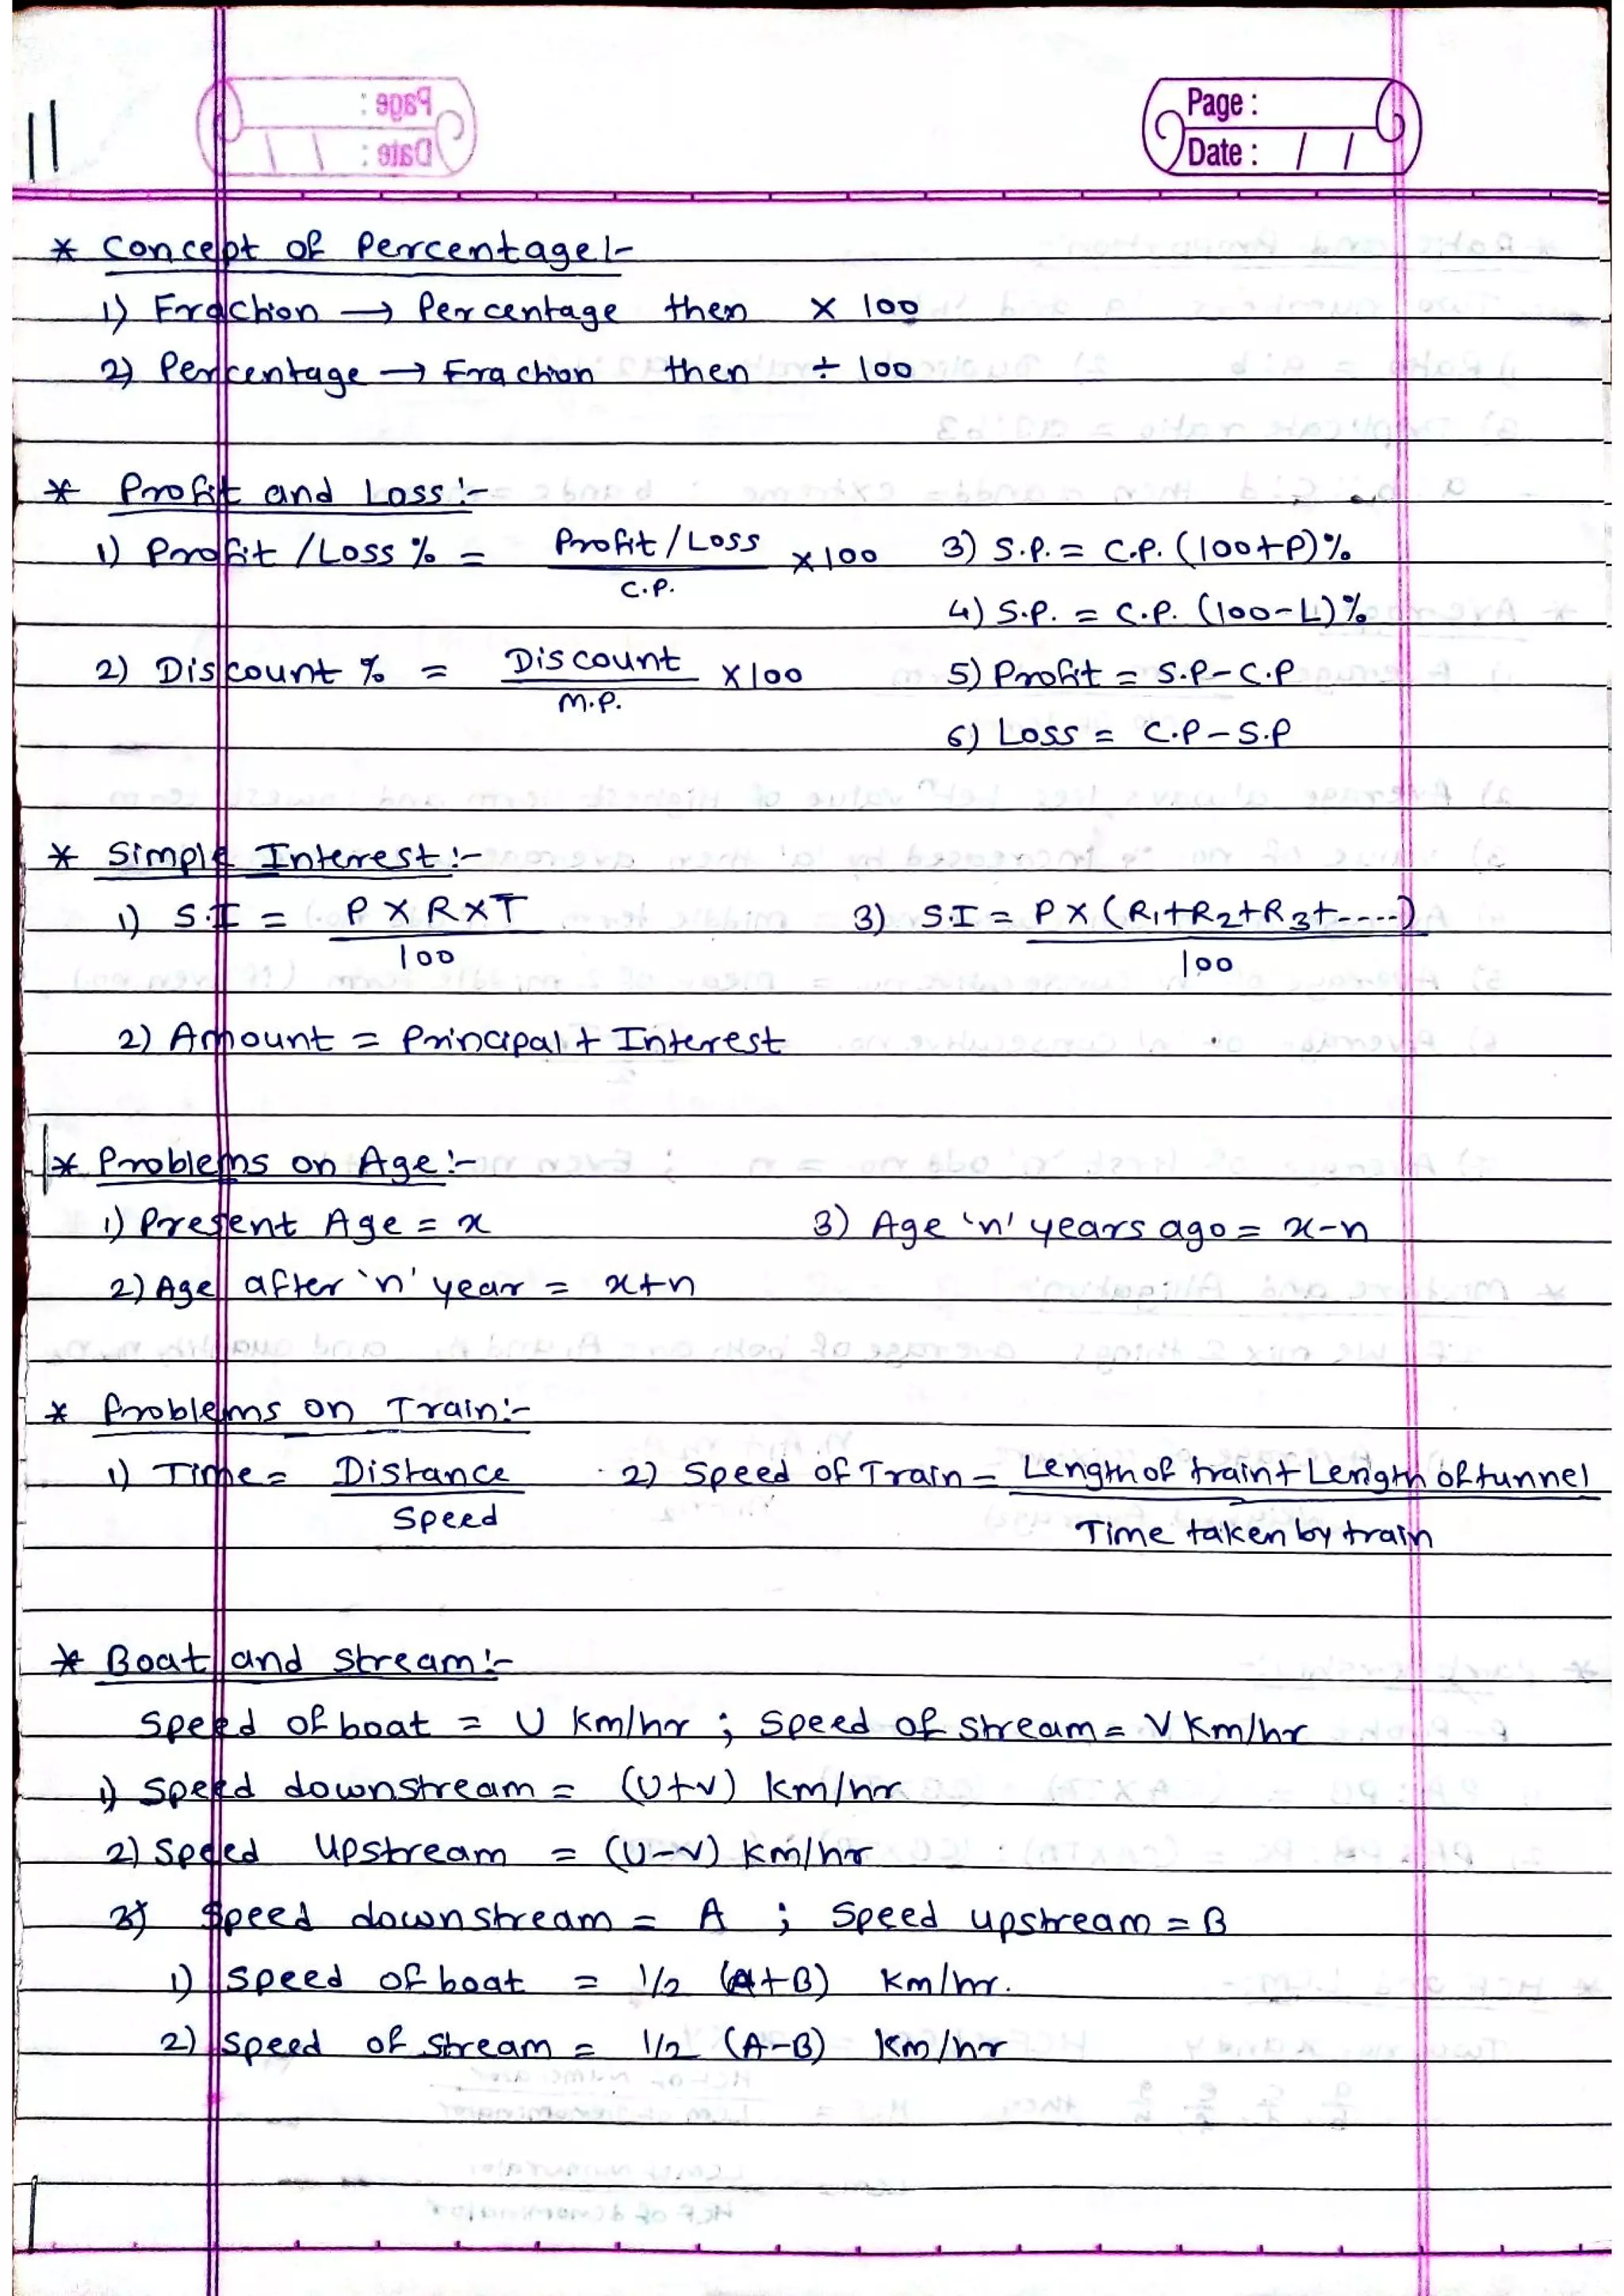 11
Page :
Date : / /
* Concept of Percentage!-
1) Fraction → Percentage then × 100
2) Percentage → Fraction then ÷ 100
* Profit and Loss:-
1) Profit / Loss % = Profit / Loss / C.P. ×100
3) S.P. = C.P. (100+P)%
4) S.P. = C.P. (100-L)%
2) Discount % = Discount / M.P. ×100
5) Profit = S.P-C.P
6) Loss = C.P-S.P
* Simple Interest:-
1) S.I = P×R×T / 100
3) S.I = P×(R1+R2+R3+----) / 100
2) Amount = Principal + Interest
* Problems on Age:-
1) Present Age = x
3) Age 'n' years ago = x-n
2) Age after 'n' year = x+n
* Problems on Train:-
1) Time = Distance / Speed
2) Speed of Train = Length of train + Length of tunnel / Time taken by train
* Boat and Stream:-
Speed of boat = U km/hr ; Speed of stream = V km/hr
1) Speed downstream = (U+V) km/hr
2) Speed Upstream = (U-V) km/hr
3) Speed downstream = A ; Speed upstream = B
1) Speed of boat = 1/2 (A+B) km/hr.
2) Speed of stream = 1/2 (A-B) km/hr